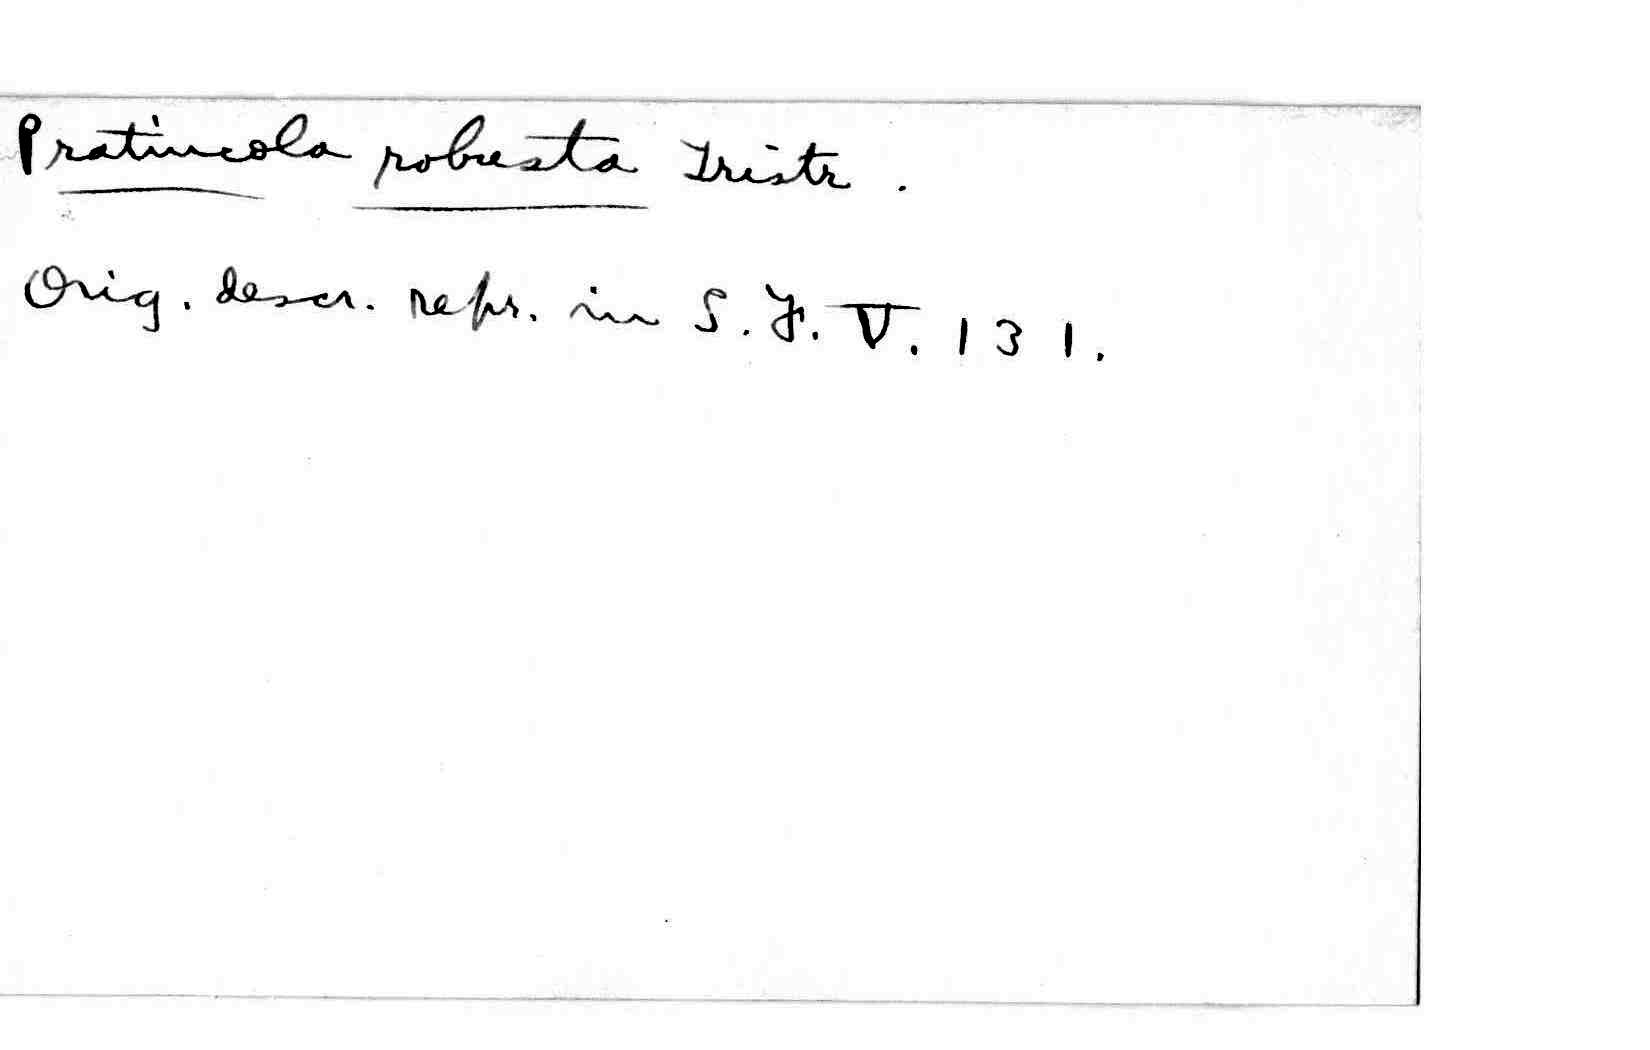 Pratincola robusta Tristr.
Orig. descr. repr. in S. F. V. 131.